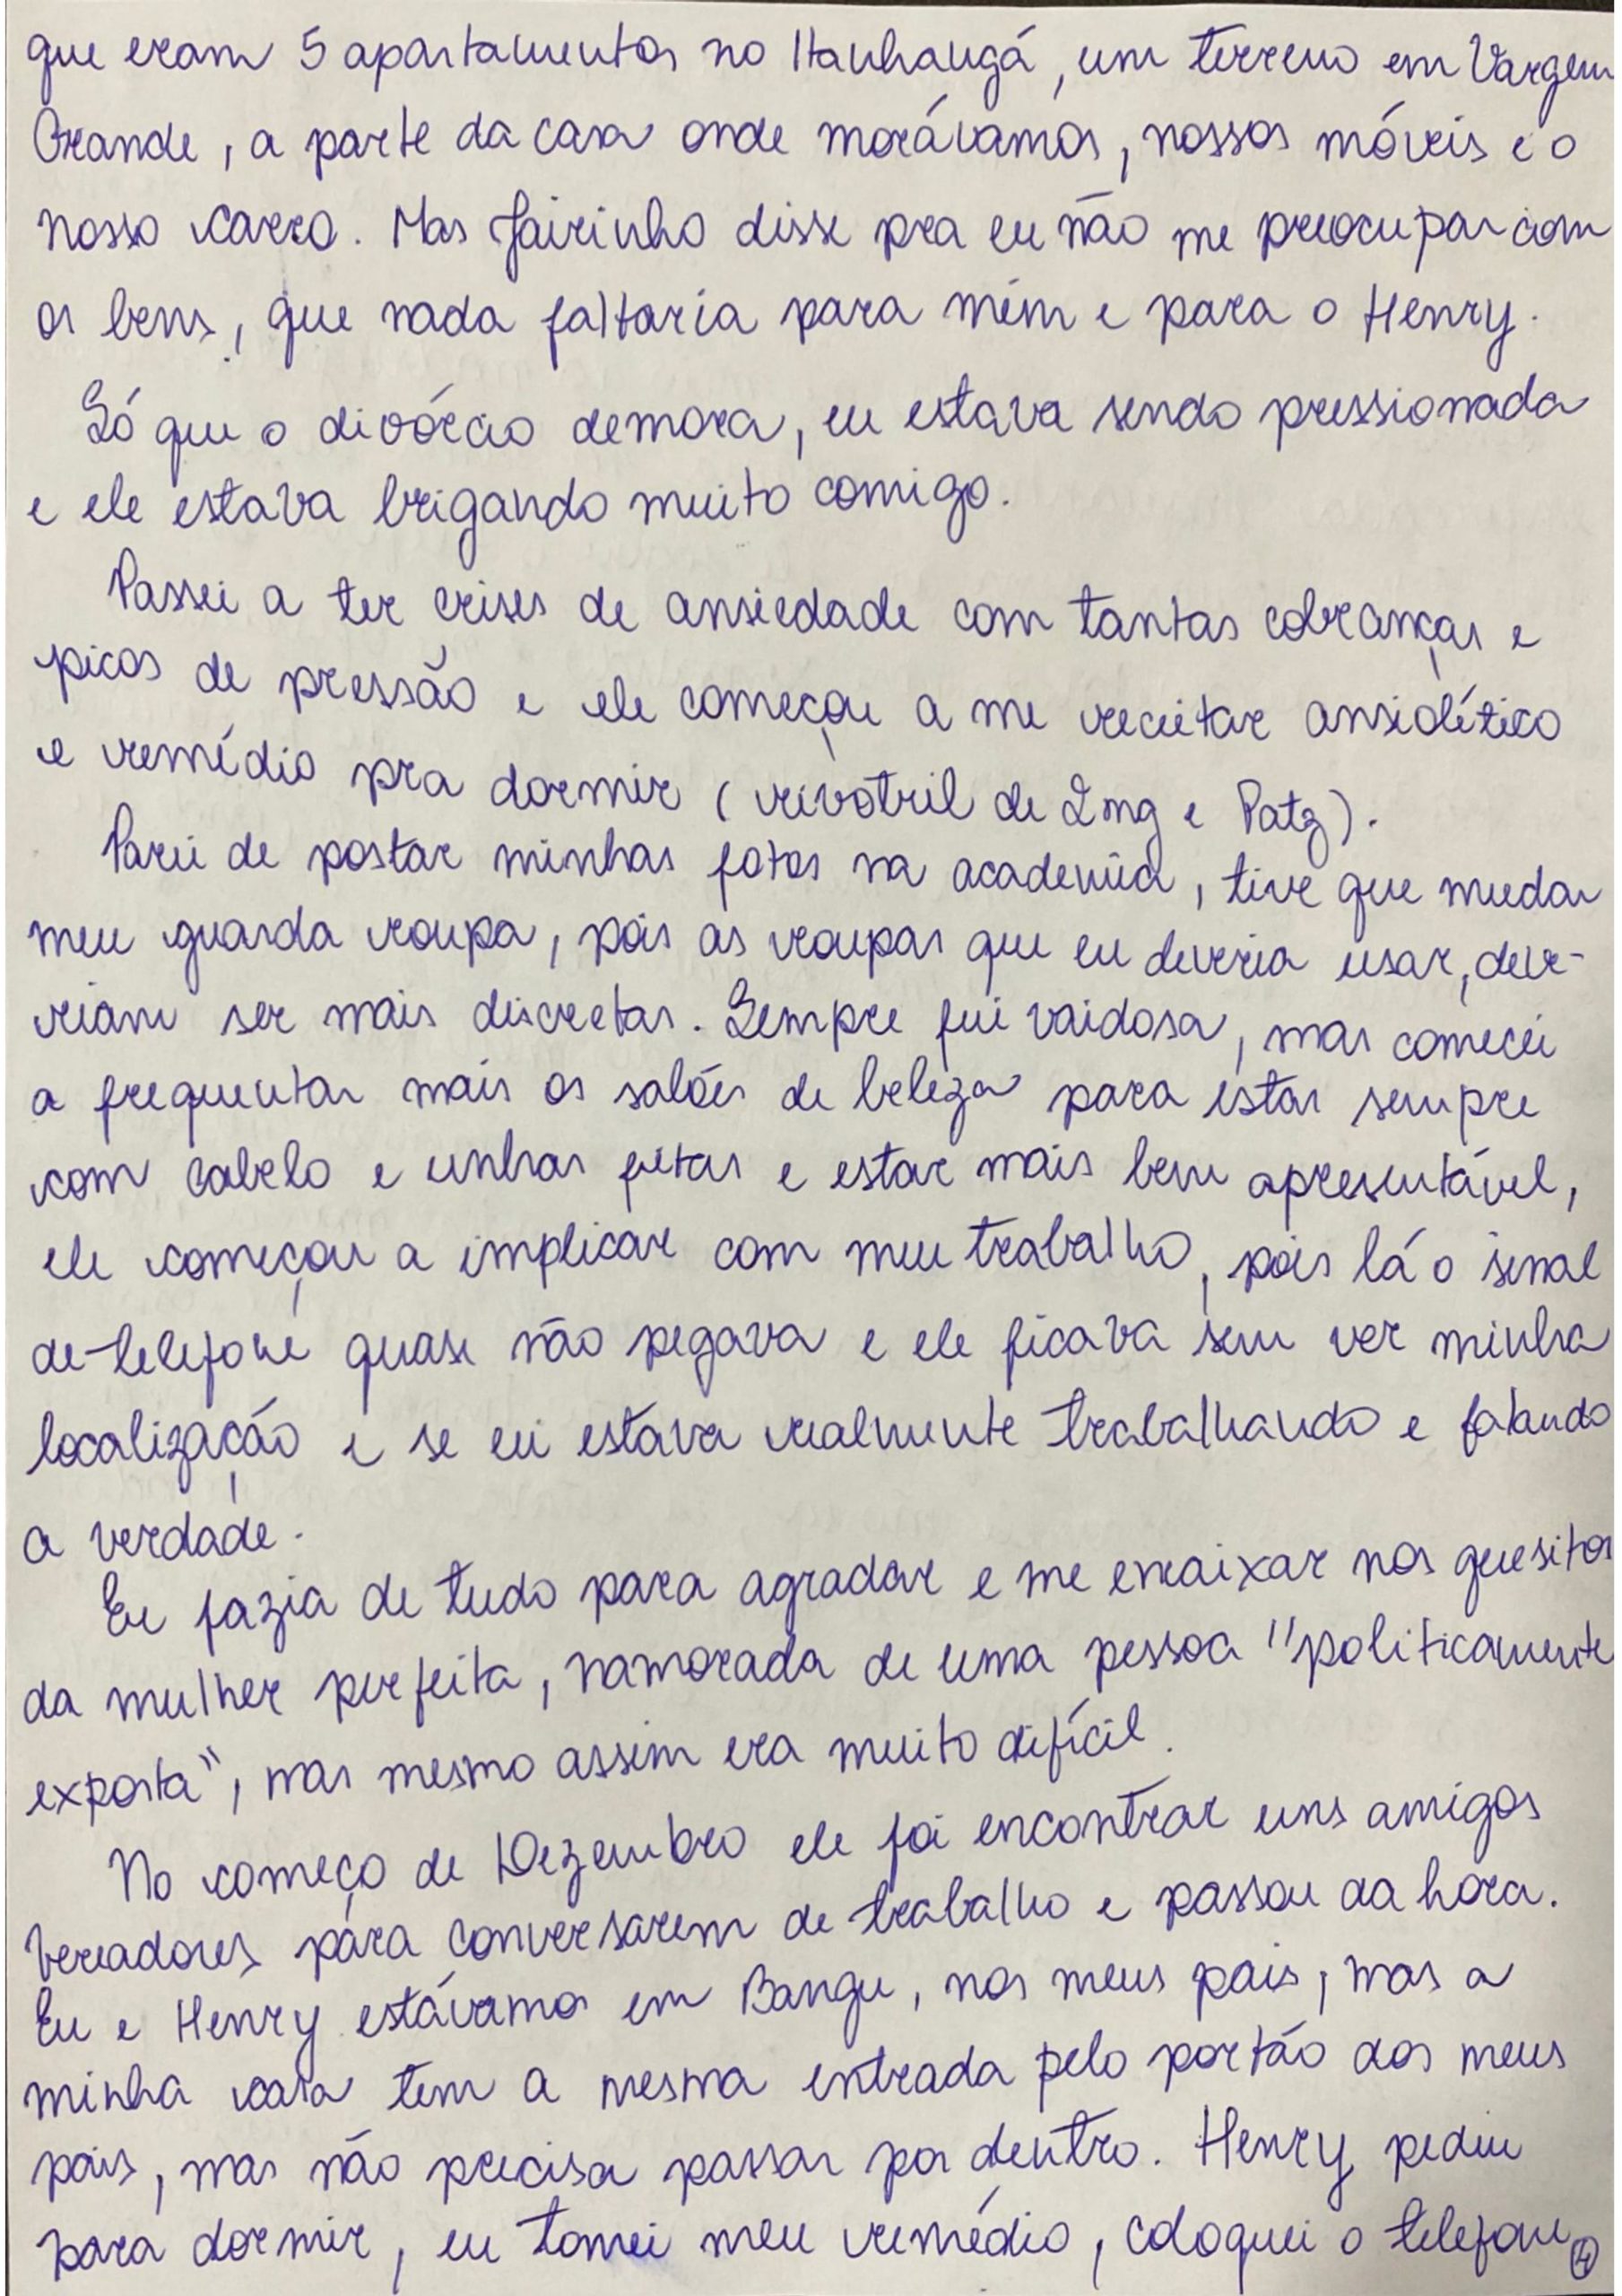 que eram 5 apartamentos no Itanhangá, um terreno em Vargem
Grande, a parte da casa onde morávamos, nossos móveis e o
nosso carro. Mas Jairinho disse pra eu não me preocupar com
os bens, que nada faltaria para mim e para o Henry.
Só que o divórcio demora, eu estava sendo pressionada
e ele estava brigando muito comigo.
Passei a ter crises de ansiedade com tantas cobranças e
picos de pressão e ele começou a me receitar ansiolítico
e remédio pra dormir (rivotril de 2mg e Patz).
Parei de postar minhas fotos na academia, tive que mudar
meu guarda roupa, pois as roupas que eu deveria usar, deve-
riam ser mais discretas. Sempre fui vaidosa, mas comecei
a frequentar mais os salões de beleza para estar sempre
com cabelo e unhas feitas e estar mais bem apresentável,
ele começou a implicar com meu trabalho, pois lá o sinal
de telefone quase não pegava e ele ficava sem ver minha
localização e se eu estava realmente trabalhando e falando
a verdade.
Eu fazia de tudo para agradar e me encaixar nos quesitos
da mulher perfeita, namorada de uma pessoa "politicamente
exposta", mas mesmo assim era muito difícil.
No começo de Dezembro ele foi encontrar uns amigos
vereadores para conversarem de trabalho e passou da hora.
Eu e Henry estávamos em Bangu, nos meus pais, mas a
minha casa tem a mesma entrada pelo portão dos meus
pais, mas não precisa passar por dentro. Henry pediu
para dormir, eu tomei meu remédio, coloquei o telefone
4